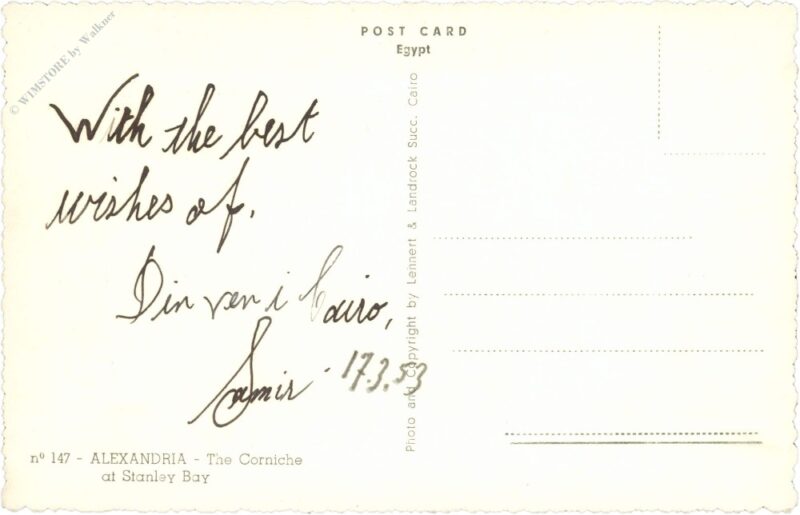 © WIMSTORE by Walkner
POST CARD
Egypt
With the best
wishes of.
Din ven i Cairo,
Samir
17.3.53
Photo and Copyright by Lehnert & Landrock Succ. Cairo
nº 147 - ALEXANDRIA - The Corniche
at Stanley Bay